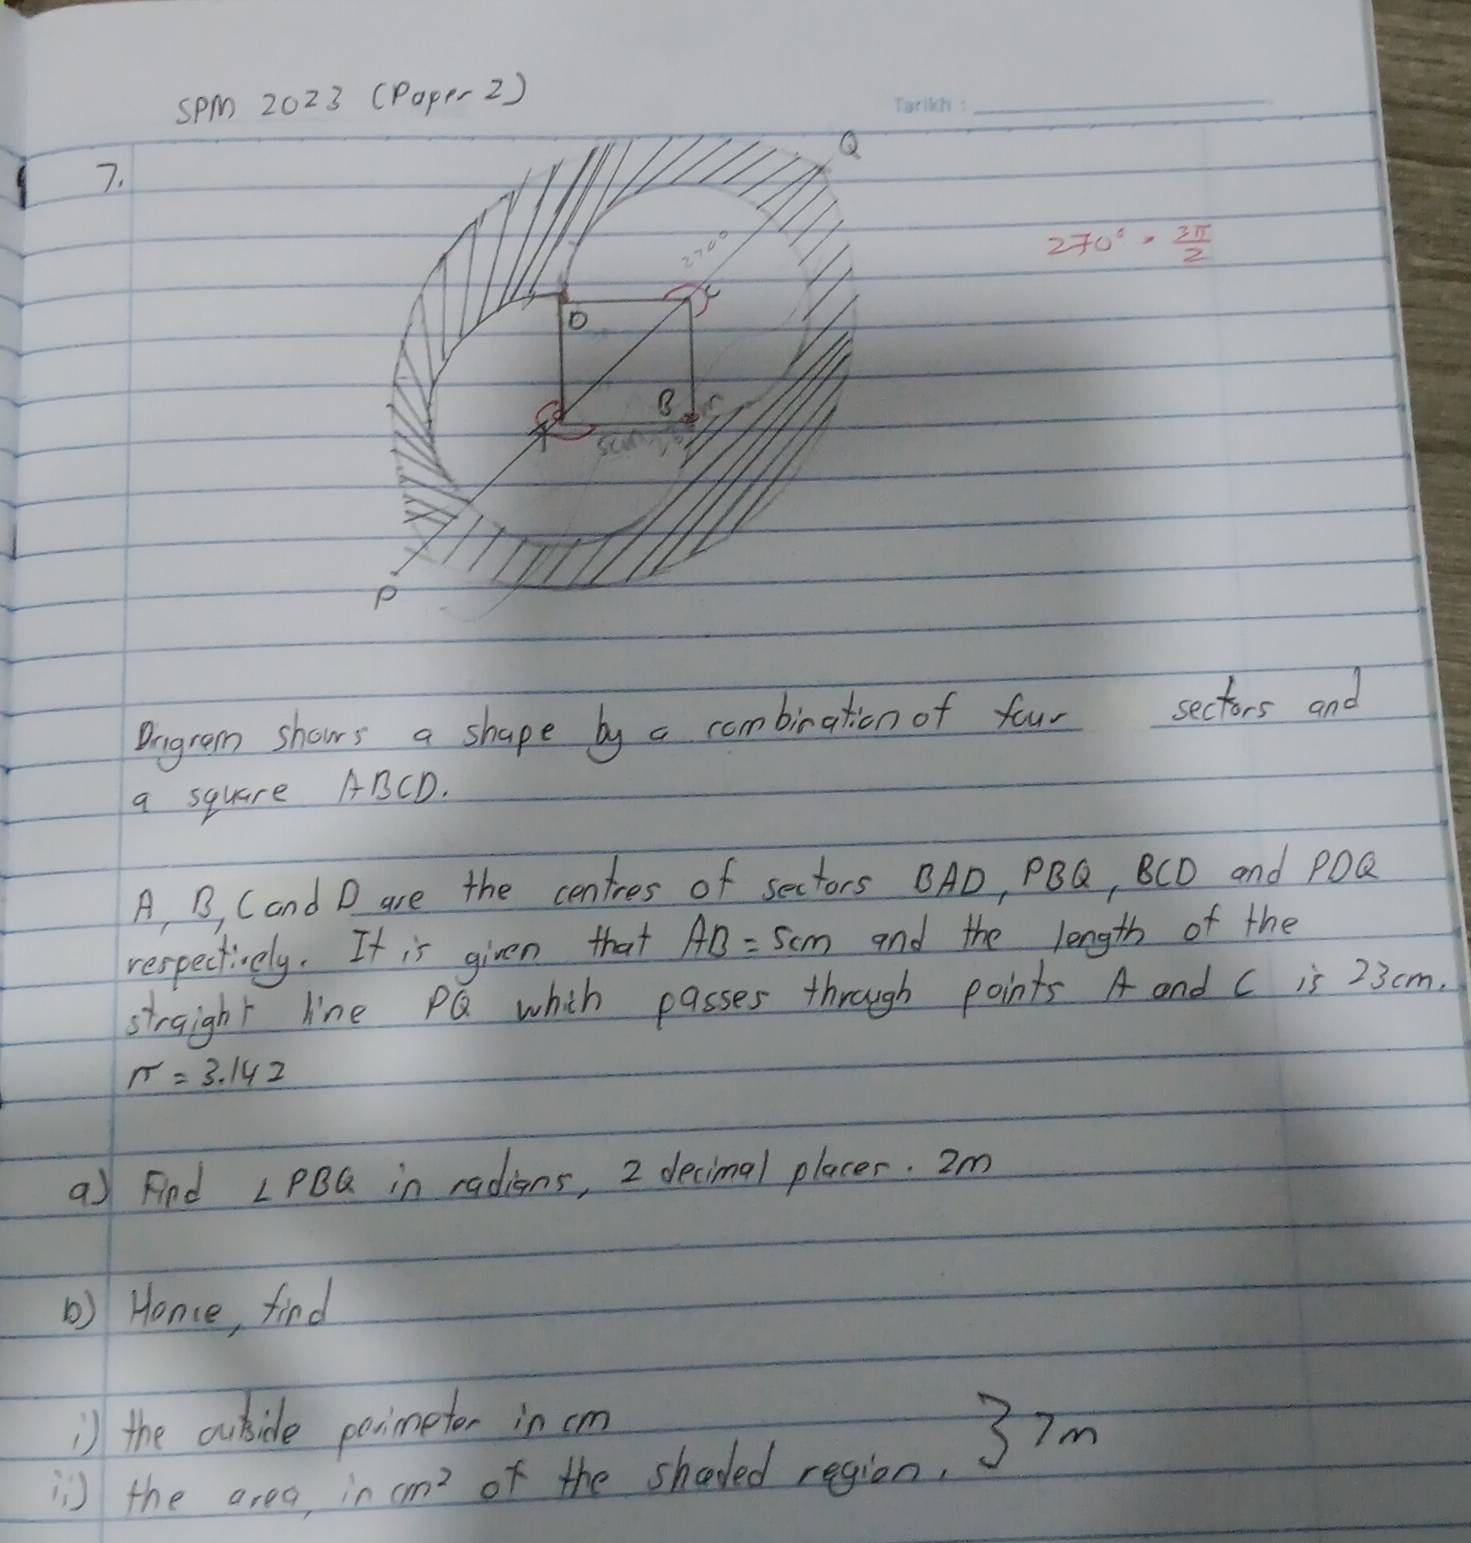 SPM 2023 (Paper 2)
Tarikh :
7.
Q
270° = 3π/2
270°
C
D
B
A
5cm
P
Diagram shows a shape by a combination of four sectors and
a square ABCD.
A, B, C and D are the centres of sectors BAD, PBQ, BCD and PDQ
respectively. It is given that AB = 5cm and the length of the
straight line PQ which passes through points A and C is 23cm.
π = 3.142
a) Find ∠PBQ in radians, 2 decimal places. 2m
b) Hence, find
i) the outside perimeter in cm
ii) the area, in cm² of the shaded region. } 7m